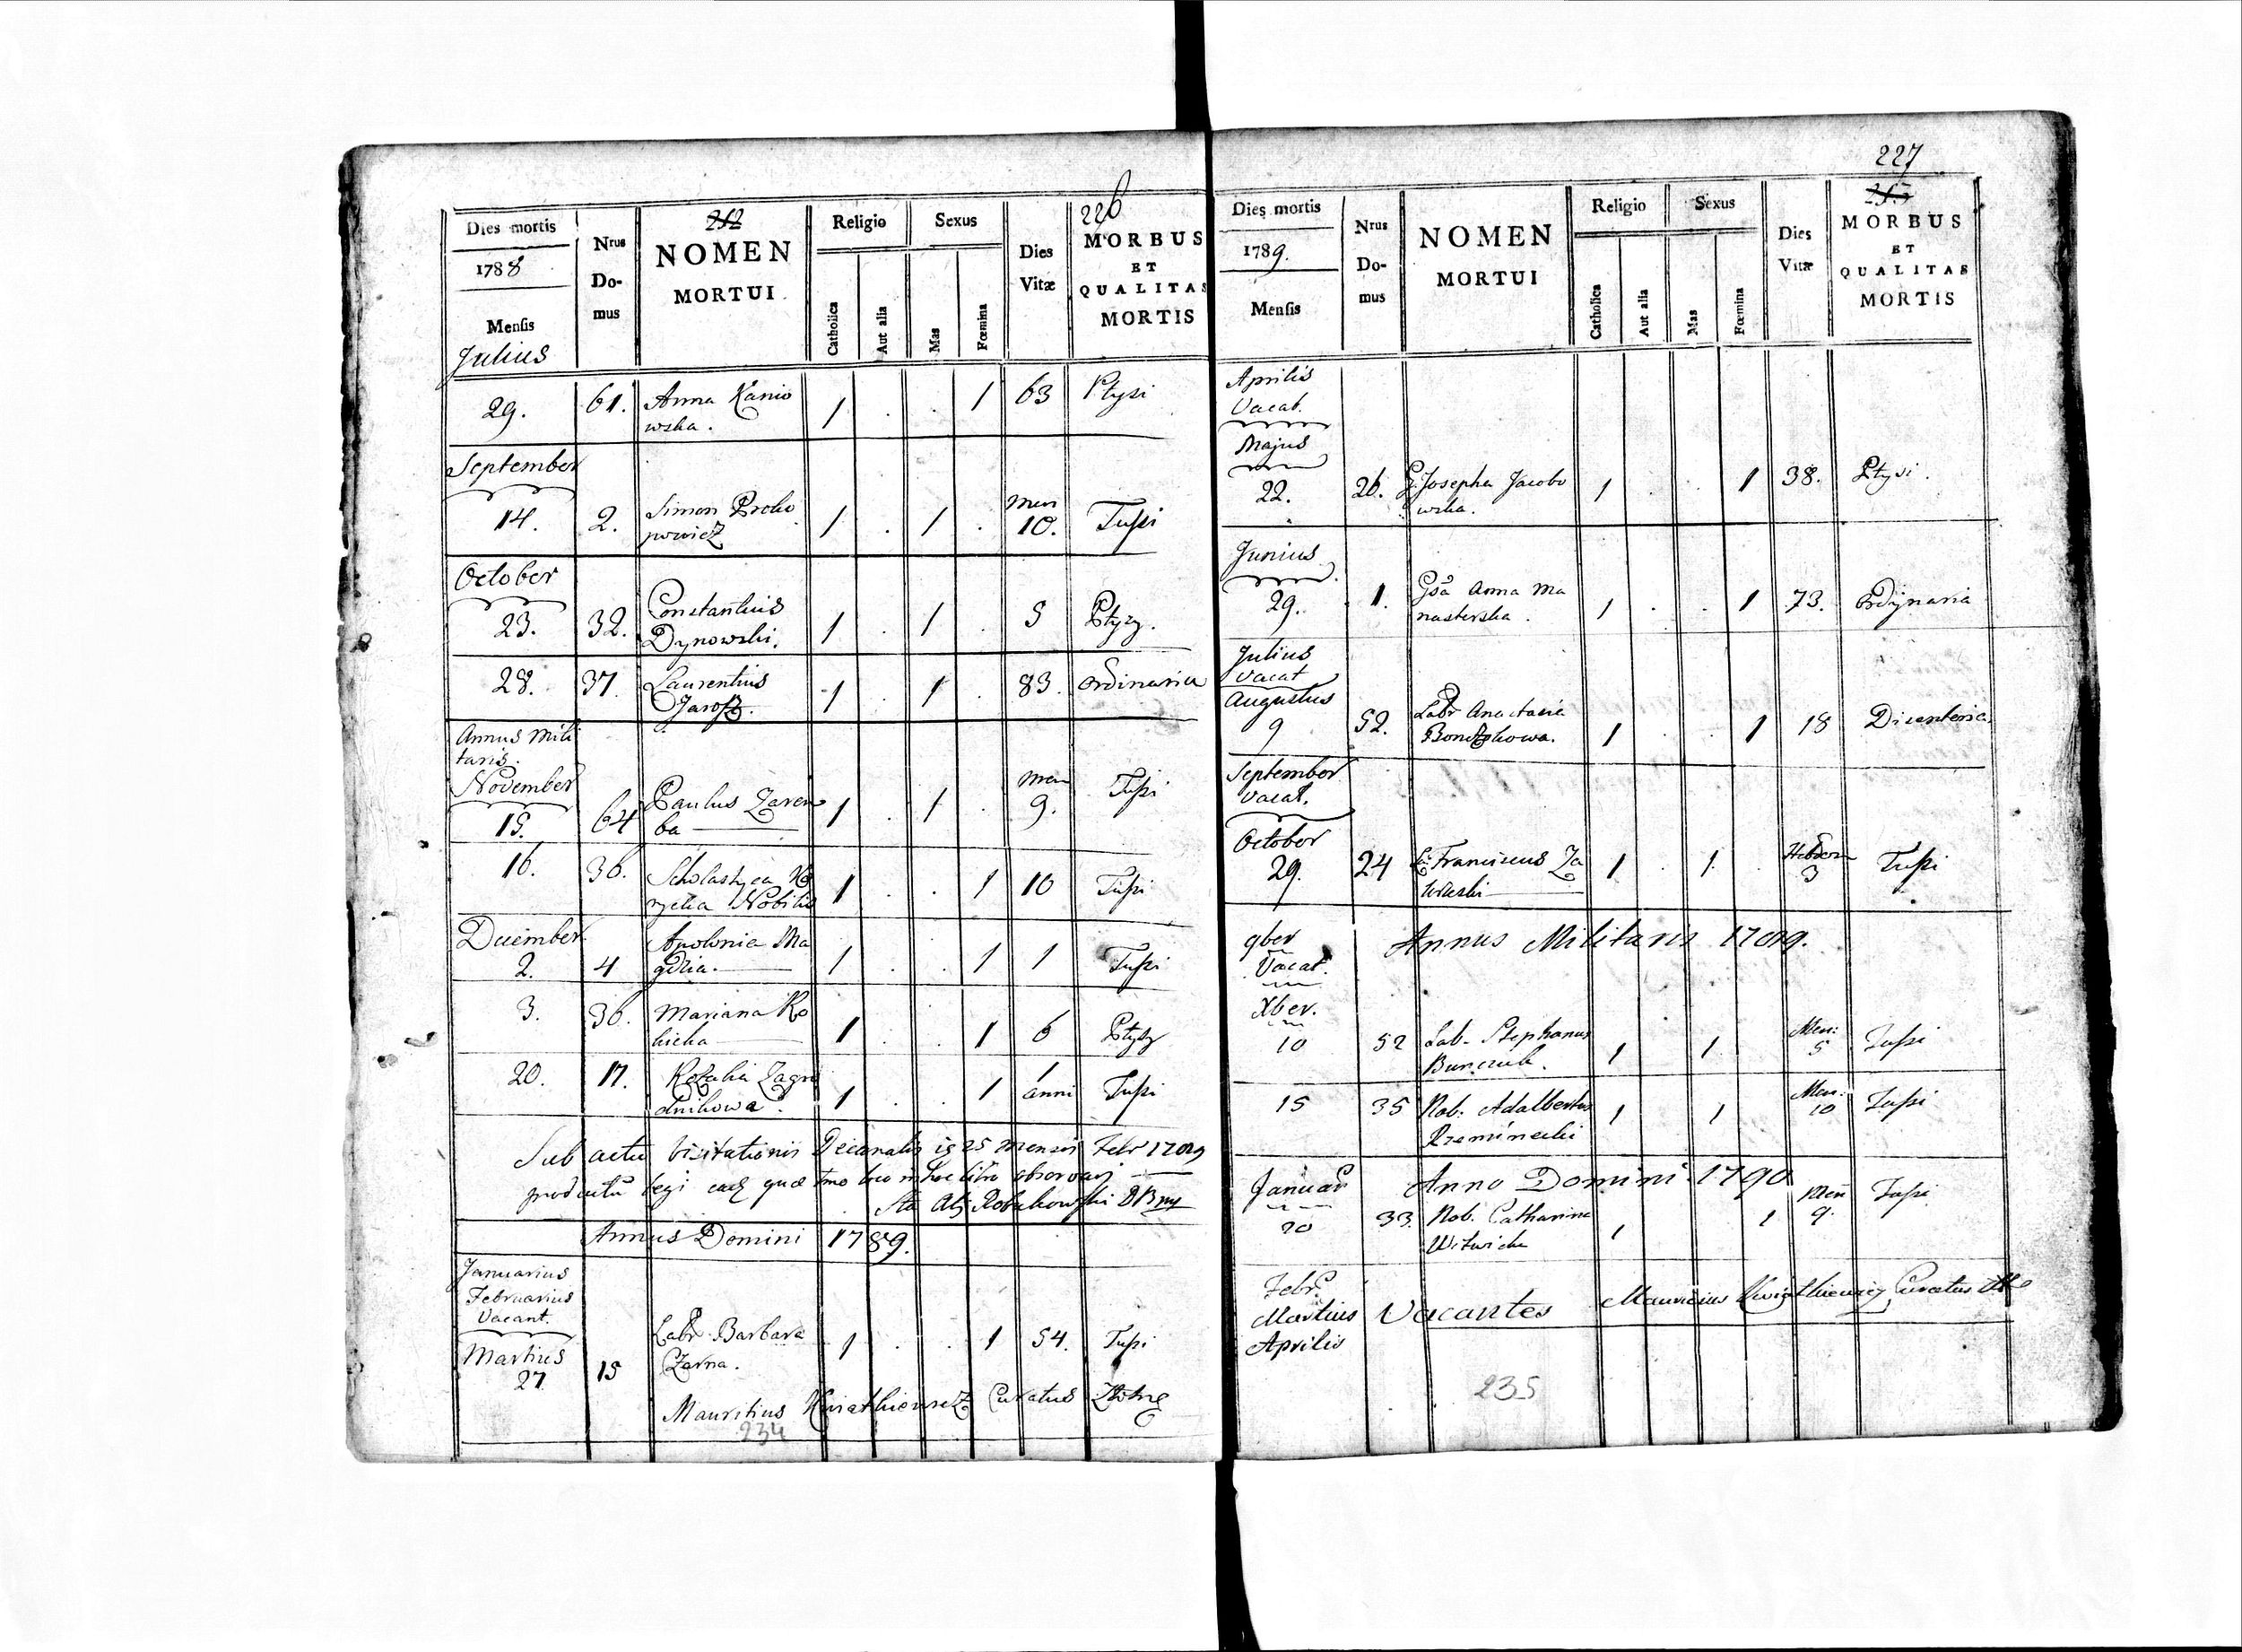 252
226
Dies mortis
1788
Mensis
Julius
Nrus Do- mus
NOMEN
MORTUI
Religio
Catholica
Aut alia
Sexus
Mas
Fœmina
Dies Vitæ
MORBUS
ET
QUALITAS
MORTIS
29. 61. Anna Kanio 1 . . 1 63 Ptysi
wska.
September
14. 2. Simon Proko 1 . 1 . Men 10. Tussi
powicz
October
23. 32. Constantius 1 . 1 . 5 Ptyzy.
Dynowski.
28. 37. Laurentius 1 . 1 . 83. Ordinaria
Jarosz.
Annus Mili
taris.
November
15. 64 Paulus Zarem 1 . 1 . Men 9. Tussi
ba
16. 36. Scholastyca 1 . . 1 10 Tussi
Nobilis
December
2. 4 Apolonia Ma 1 . . 1 1 Tussi
gdzia.
3. 36. Mariana Ro 1 . . 1 6 Ptyzy
hicka
20. 17. Rozalia Zagro 1 . . 1 1 anni Tussi
dnikowa.
Sub actu visitationis Decanalis 25 Mensis Febr 1789
productum legi in hoc libro observavi
Annus Domini 1789.
Januarius
Februarius
Vacant.
Martius
27 15 Labr. Barbara 1 . . 1 54. Tussi
Czarna.
Mauritius Curatus
234
227
253
Dies mortis
1789.
Mensis
Nrus Do- mus
NOMEN
MORTUI
Religio
Catholica
Aut alia
Sexus
Mas
Fœmina
Dies Vitæ
MORBUS
ET
QUALITAS
MORTIS
Aprilis
Vacat.
Majus
22. 26. G. Josepha Jacobo 1 . . 1 38. Ptysi.
wska.
Junius
29. 1. Gsa Anna Ma 1 . . 1 73. Ordynaria
nasterska.
Julius
Vacat
Augustus
9 52. Labr Anastasia 1 . . 1 18 Disenteria
September
Vacat.
October
29. 24 Franciscus Za 1 . 1 . Hebdom 3 Tussi
wluski
9ber
Vacat.
Annus Militaris 1789.
Xber.
10 52 Lab. Stephanus 1 1 Men: 5 Tussi
Bunczuk.
15 35 Nob. Adalbertus 1 1 Men: 10 Tussi
Krzeminecki
Januar Anno Domini 1790
20 33. Nob. Catharina 1 1 Men 9. Tussi
Witwicka
Febr
Martius Vacantes Mauricius Curatus
Aprilis
235